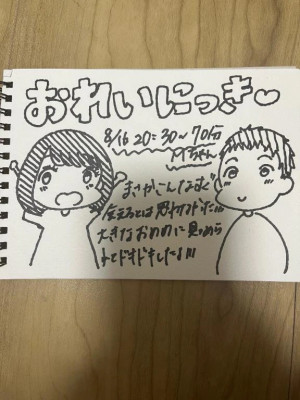 おれいにっき
8/16 20:30~70分
Mちゃん
まさかこんなすぐ
会えるとは思わなかった!!!
大きなおめめに見つめら
れてドキドキした!!!